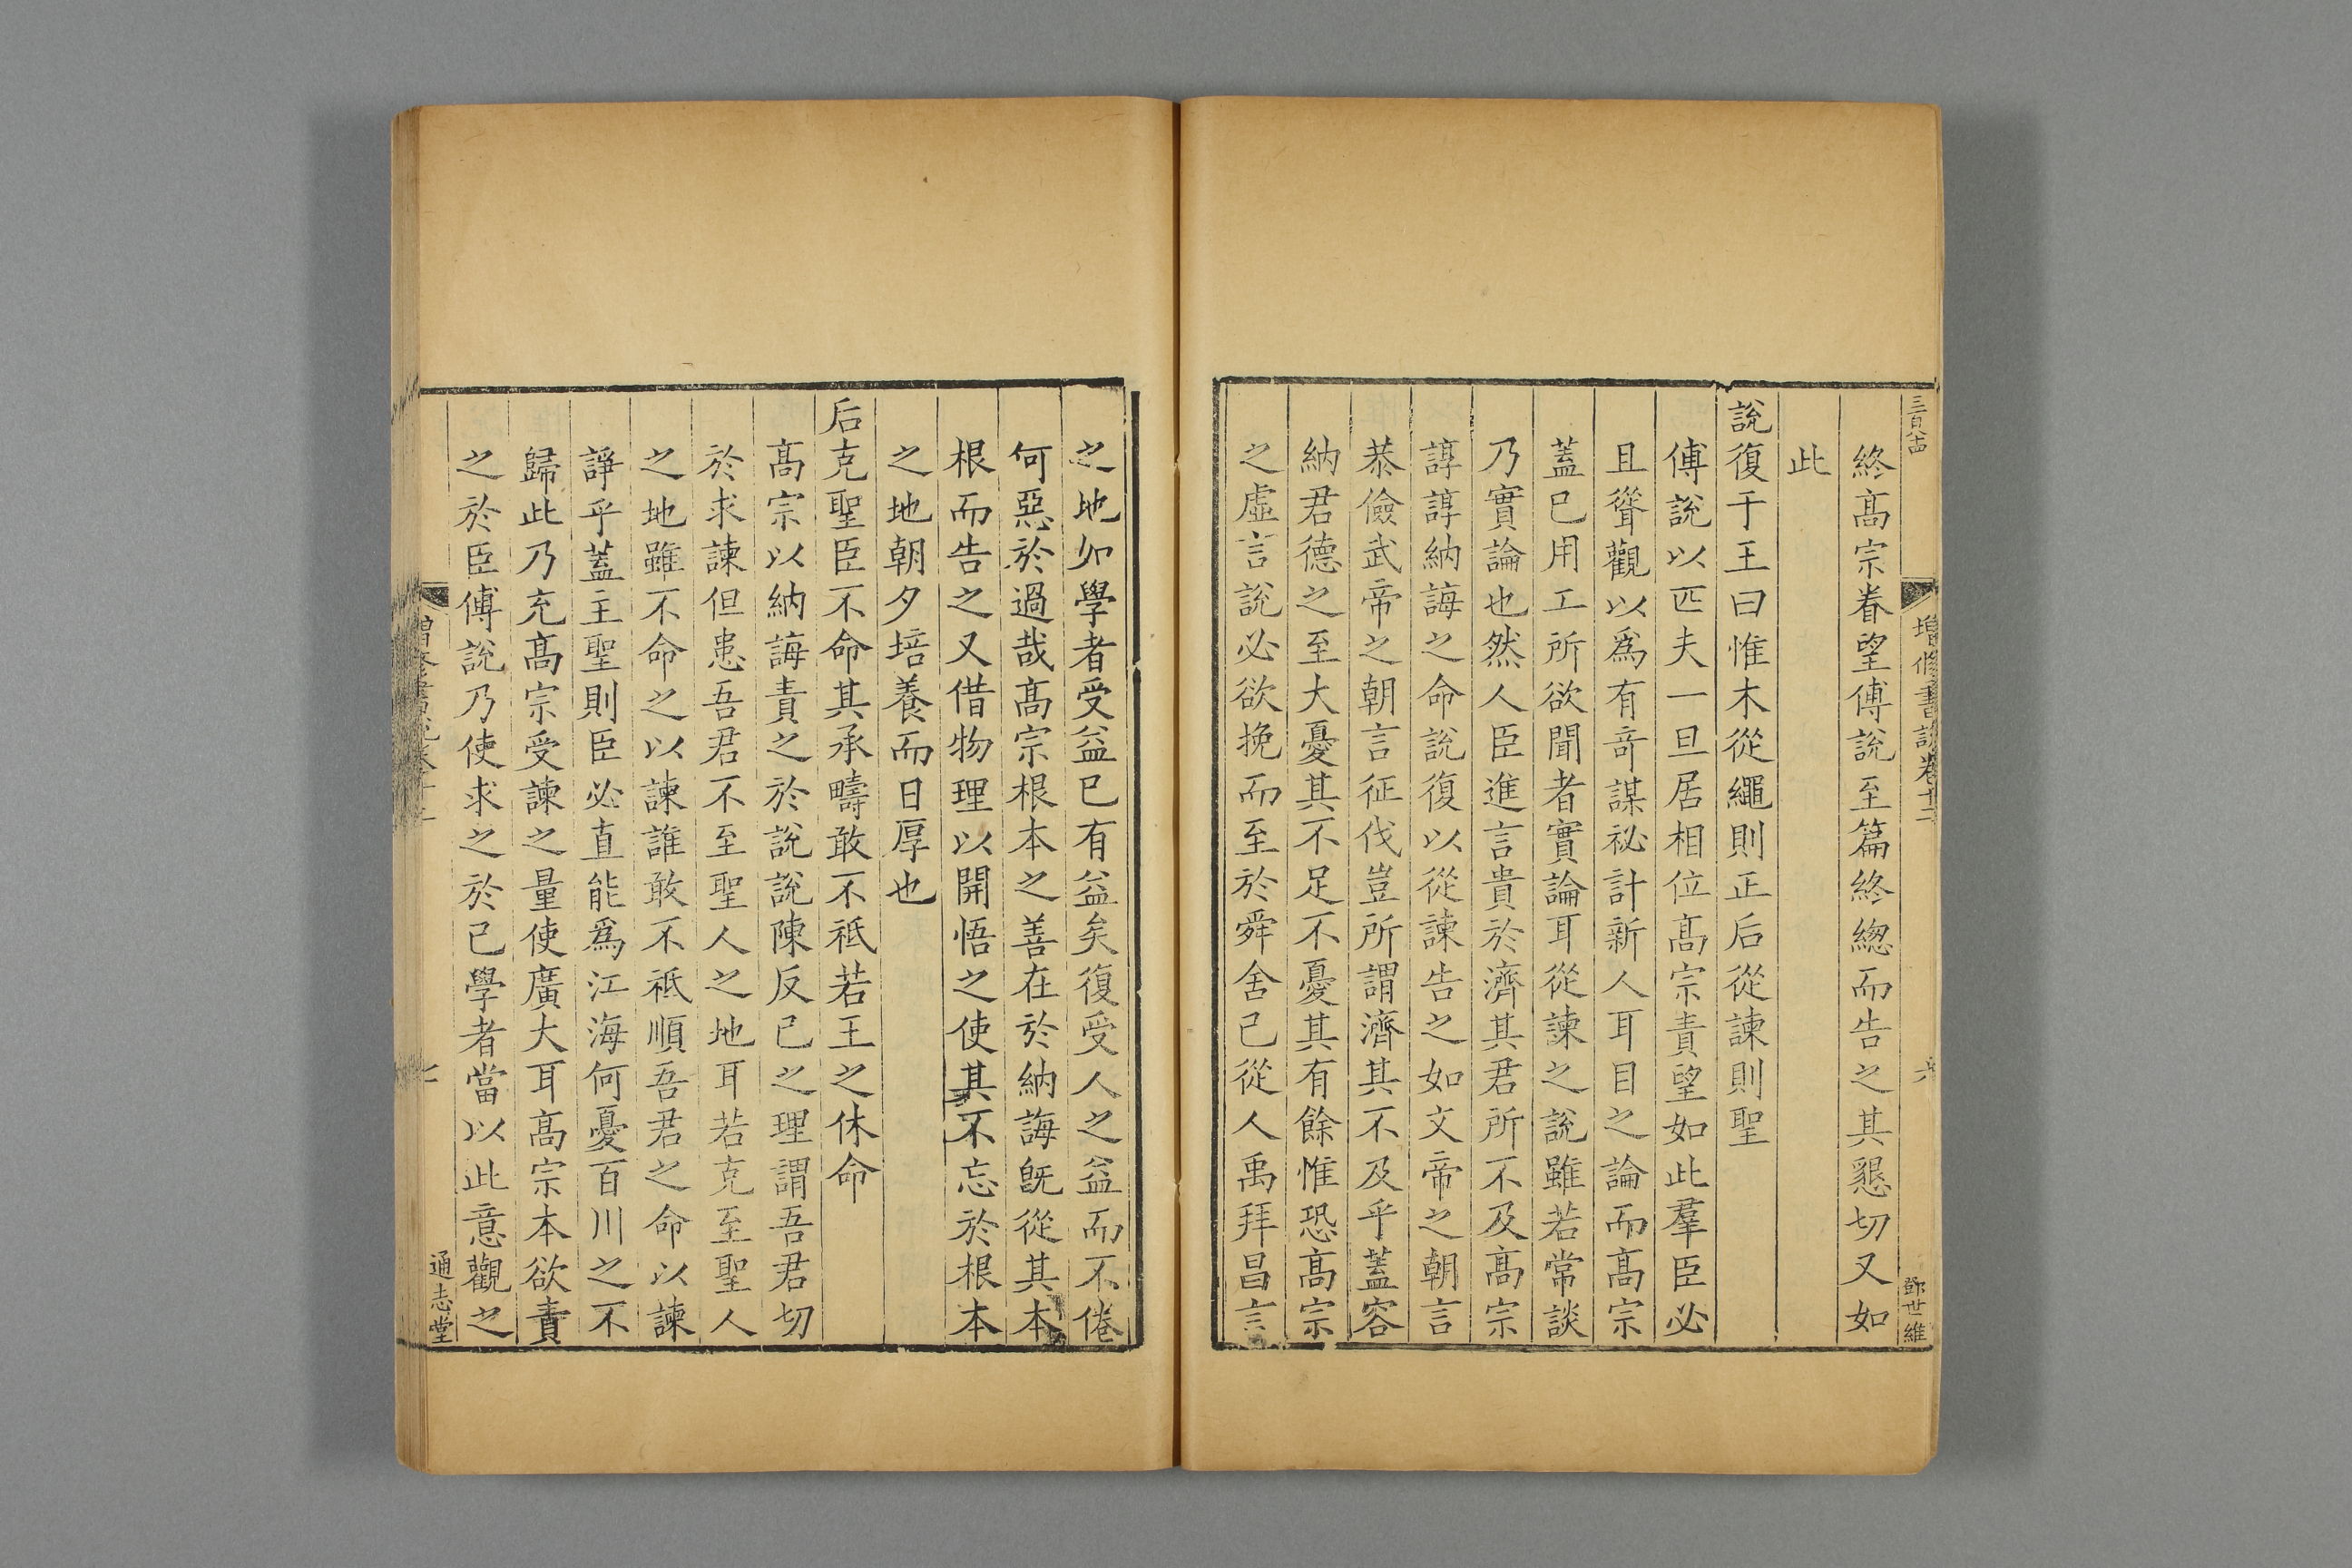 增修書說卷十二
六
鄧世維
終高宗眷望傅說至篇終緫而告之其懇切又如
此
說復于王曰惟木從繩則正后從諫則聖
傅說以匹夫一旦居相位高宗責望如此羣臣必
且聳觀以爲有竒謀祕計新人耳目之論而高宗
蓋已用工所欲聞者實論耳從諫之說雖若常談
乃實論也然人臣進言貴於濟其君所不及高宗
諄諄納誨之命說復以從諫告之如文帝之朝言
恭儉武帝之朝言征伐豈所謂濟其不及乎蓋容
納君德之至大憂其不足不憂其有餘惟恐高宗
之虛言說必欲挽而至於舜舍己從人禹拜昌言
之地如學者受益已有益矣復受人之益而不倦
何惡於過哉高宗根本之善在於納誨旣從其本
根而告之又借物理以開悟之使其不忘於根本
之地朝夕培養而日厚也
后克聖臣不命其承疇敢不祗若王之休命
高宗以納誨責之於說說陳反己之理謂吾君切
於求諫但患吾君不至聖人之地耳若克至聖人
之地雖不命之以諫誰敢不祗順吾君之命以諫
諍乎蓋主聖則臣必直能爲江海何憂百川之不
歸此乃充高宗受諫之量使廣大耳高宗本欲責
之於臣傅說乃使求之於己學者當以此意觀之
通志堂